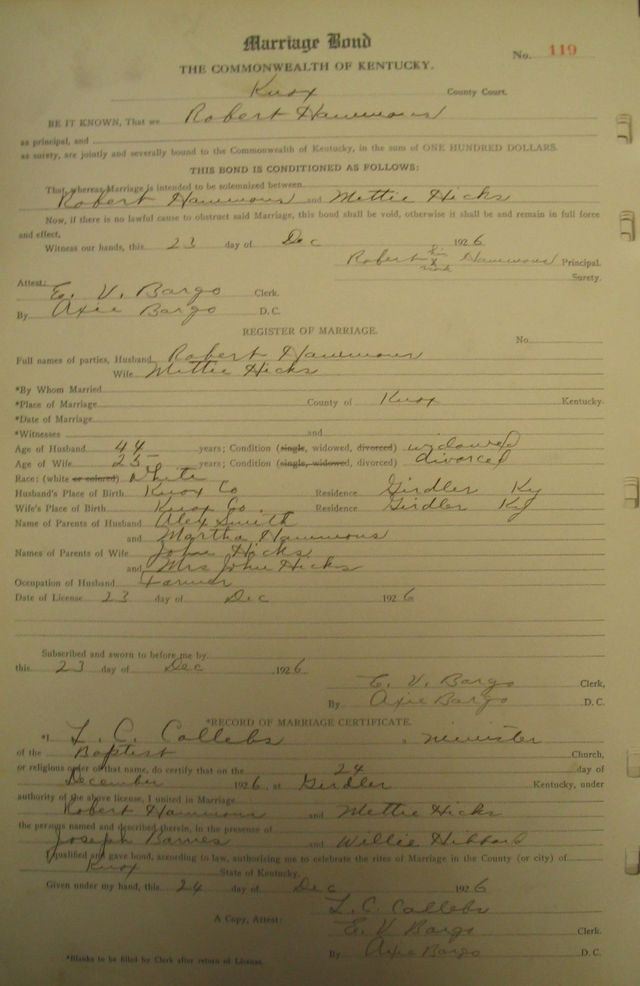 Marriage Bond
No. 119
THE COMMONWEALTH OF KENTUCKY.
Knox County Court.
BE IT KNOWN, That we Robert Hammons
as principal, and
as surety, are jointly and severally bound to the Commonwealth of Kentucky, in the sum of ONE HUNDRED DOLLARS.
THIS BOND IS CONDITIONED AS FOLLOWS:
That, whereas Marriage is intended to be solemnized between
Robert Hammons and Mettie Hicks
Now, if there is no lawful cause to obstruct said Marriage, this bond shall be void, otherwise it shall be and remain in full force
and effect.
Witness our hands, this 23 day of Dec 1926
Robert his X mark Hammons Principal.
Surety.
Attest:
E. V. Bargo Clerk.
By Axie Bargo D. C.
REGISTER OF MARRIAGE.
No.
Full names of parties, Husband Robert Hammons
Wife Mettie Hicks
*By Whom Married
*Place of Marriage County of Knox Kentucky.
*Date of Marriage
*Witnesses and
Age of Husband 44 years; Condition (single, widowed, divorced) widowed
Age of Wife 25 years; Condition (single, widowed, divorced) divorced
Race: (white or colored) White
Husband's Place of Birth Knox Co Residence Girdler Ky
Wife's Place of Birth Knox Co. Residence Girdler Ky
Name of Parents of Husband Alex Smith
and Martha Hammons
Names of Parents of Wife John Hicks
and Mrs John Hicks
Occupation of Husband Farmer
Date of License 23 day of Dec 1926
Subscribed and sworn to before me by
this 23 day of Dec 1926
E. V. Bargo Clerk,
By Axie Bargo D. C.
*RECORD OF MARRIAGE CERTIFICATE.
*I L. C. Collebs, minister
of the Baptist Church,
or religious order of that name, do certify that on the 24 day of
December 1926, at Girdler Kentucky, under
authority of the above license, I united in Marriage
Robert Hammons and Mettie Hicks
the persons named and described therein, in the presence of
Joseph Barnes and Willie Hibbard
I qualified and gave bond, according to law, authorizing me to celebrate the rites of Marriage in the County (or city) of
Knox State of Kentucky.
Given under my hand, this 24 day of Dec 1926
L. C. Collebs
A Copy, Attest: E. V Bargo Clerk.
By Axie Bargo D. C.
*Blanks to be filled by Clerk after return of License.